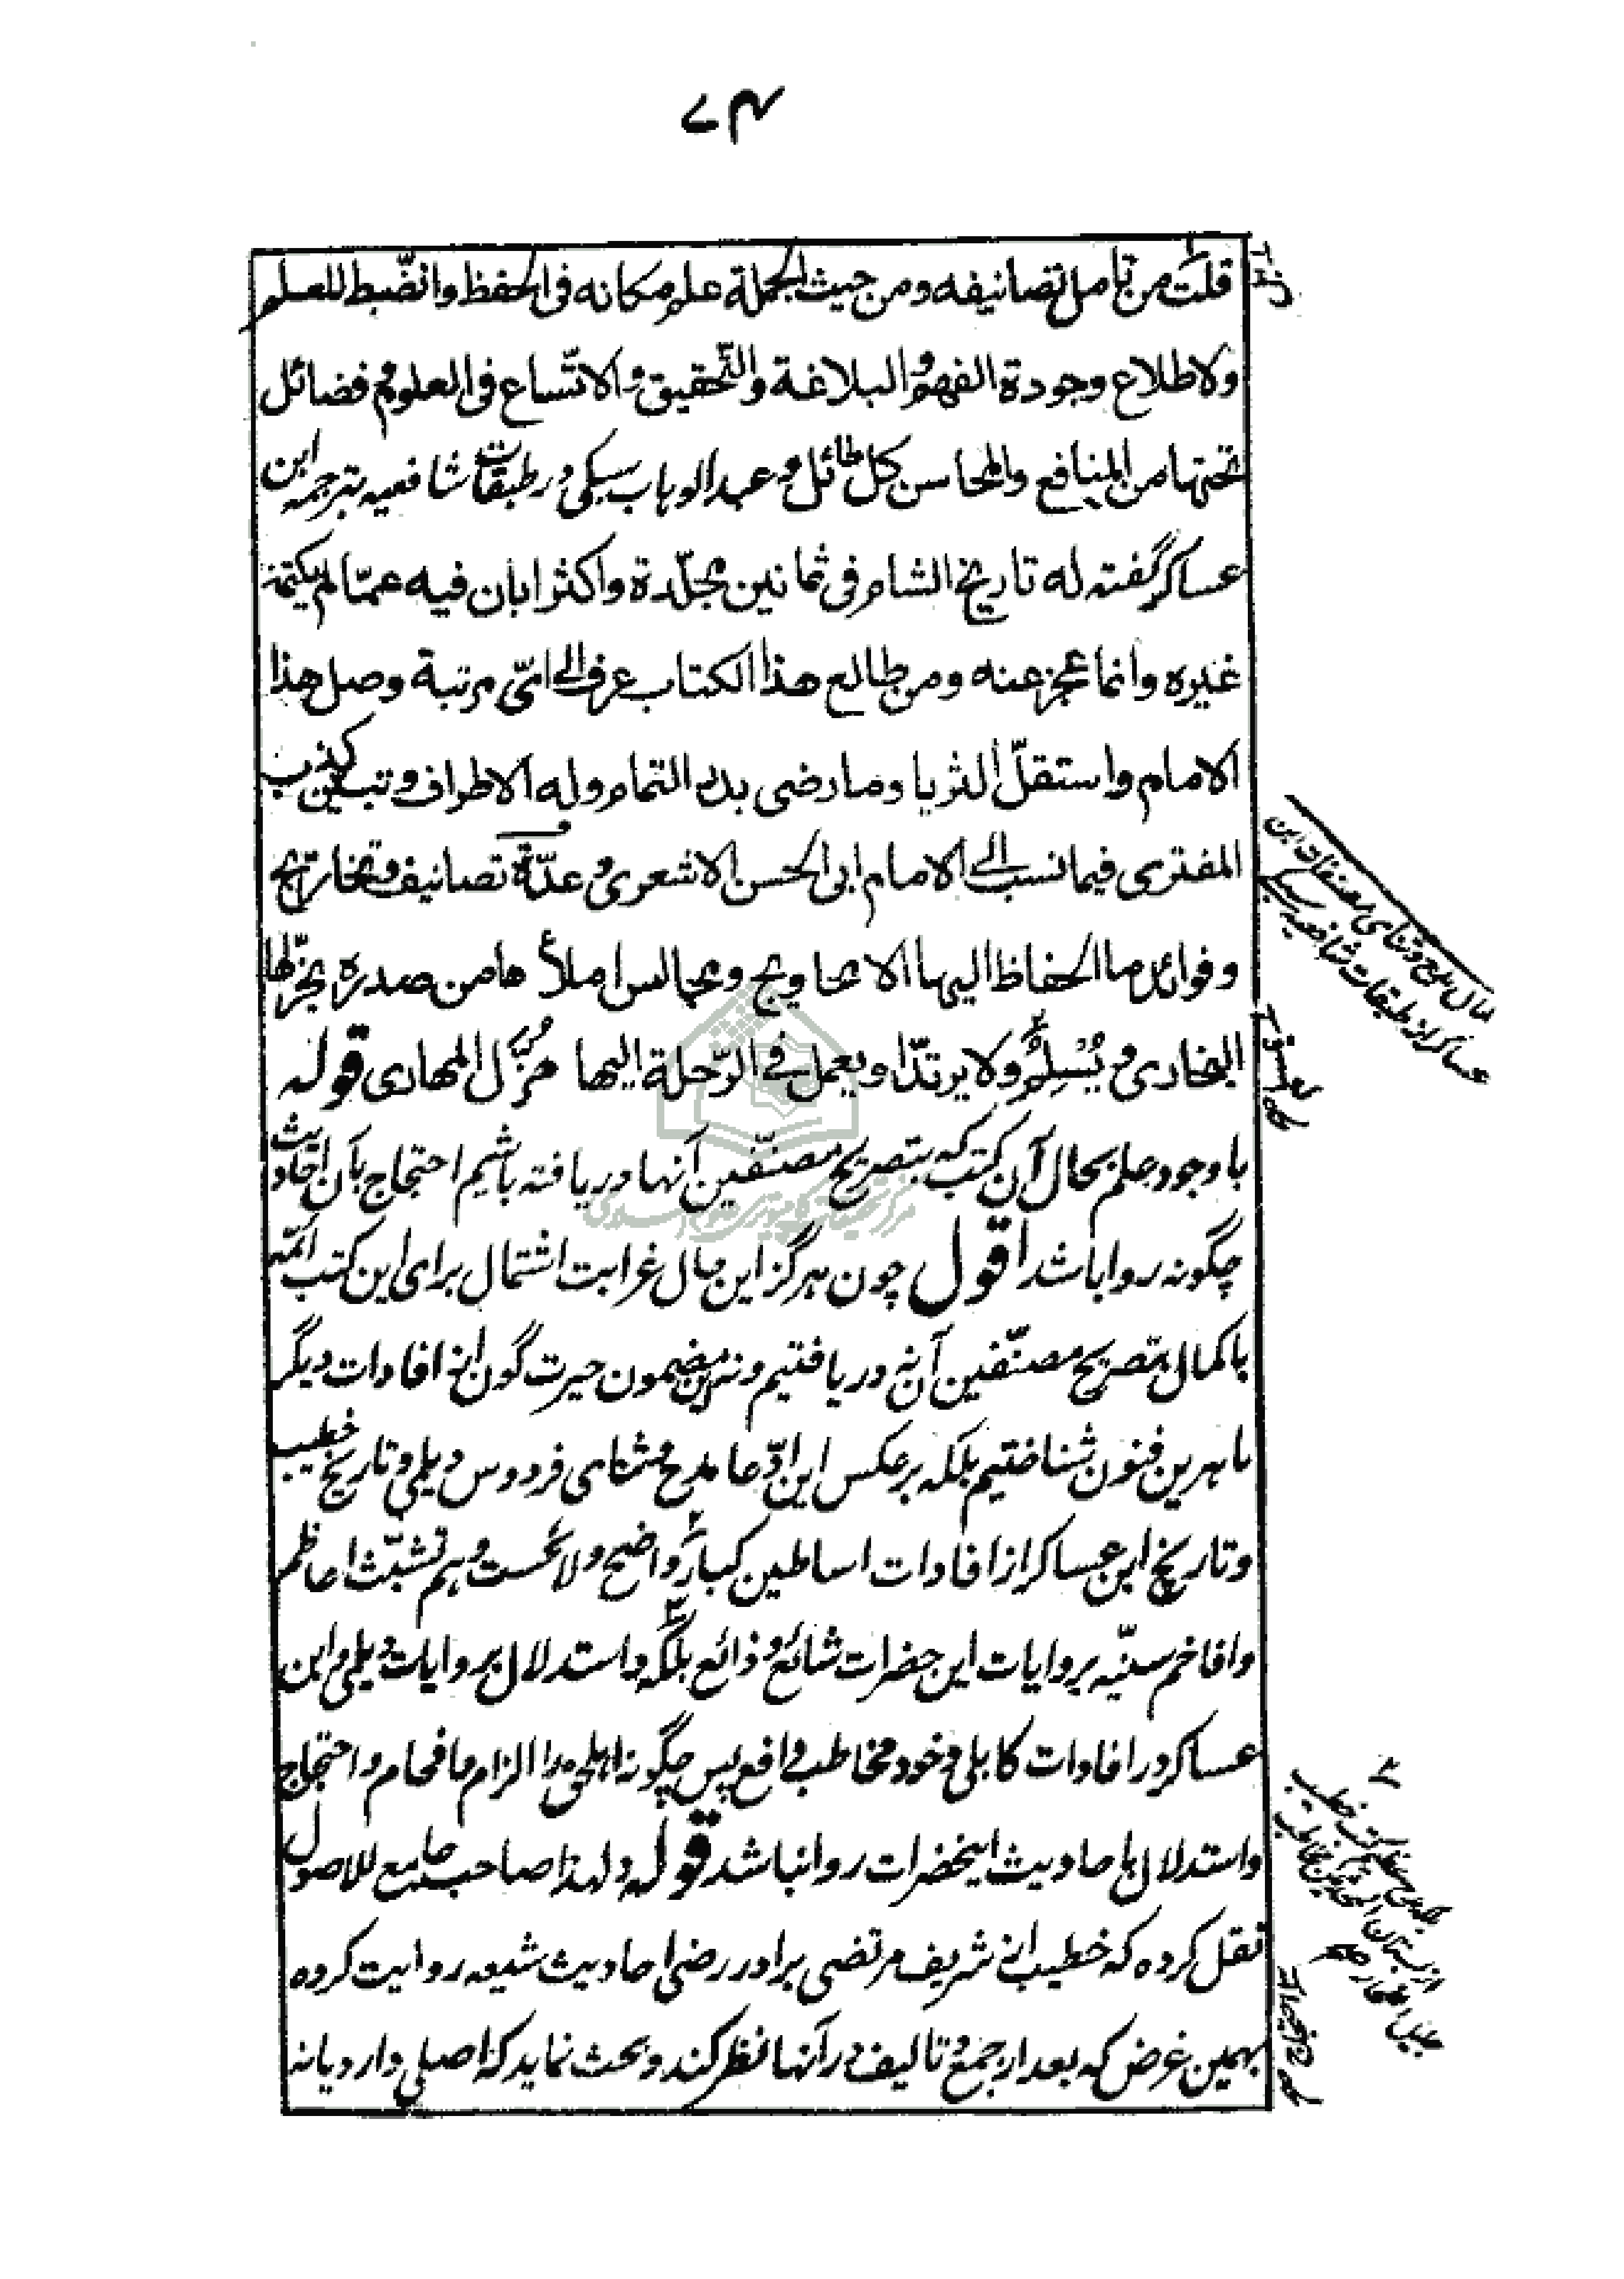 ۷۴
قلت من تامل تصانیفه ومن حیث الجملة علم مکانه فی الحفظ والضّبط للعلم
والاطلاع وجودة الفهم والبلاغة والتّحقیق والاتّساع فی العلوم و فضائل
تحتها من المنافع والمحاسن کل طائل و عبد الوهاب سبکی در طبقات شافعیه بترجمه ابن
عساکر گفته له تاریخ الشام فی ثمانین مجلّدة واکثر ابان فیه عمّا لم یکتمه
غیره وانما عجز عنه ومن طالع هذا الکتاب عرف الی ایّ مرتبة وصل هذا
الامام واستقلّ الثریا وما رضی بدر التمام وله الاطراف و تبیین کذب
المفتری فیما نسب الی الامام ابی الحسن الاشعری و عدّة تصانیف و تخاریج
وفوائد ما الحفاظ الیها الا محاویج ومجالس املاءها من صدره یخرّ لها
البخاری و یُسَلِّم ولا یرتدّ او یعمل فی الرّحلة الیها مُزَّل المهاری قوله
با وجود علم بحال آن کتب که بتصریح مصنّفین آنها دریافته باشیم احتجاج بآن احادیث
چگونه روا باشد اقول چون هرگز این حال غرابت اشتمال برای این کتب ائمه
با کمال بتصریح مصنّفین آن نه دریافتیم و نه این مضمون حیرت گون از افادات دیگر
ماهرین فنون شناختیم بلکه برعکس این ادّعا مدح و ثنای فردوس دیلمی و تاریخ خطیب
و تاریخ ابن عساکر از افادات اساطین کبار واضح و لائحست و هم تشبّث اعاظم
و افاخم سنّیه بروایات این حضرات شائع و ذائع بلکه استدلال بروایات دیلمی و ابن
عساکر در افادات کابلی و خود مخاطب واقع پس چگونه اهل حق را الزام و افحام و احتجاج
و استدلال باحادیث اینحضرات روا نباشد قوله و لهذا صاحب جامع الاصول
نقل کرده که خطیب از شریف مرتضی برادر رضی احادیث شیعه روایت کرده
بهمین غرض که بعد از جمع و تالیف در آنها نظر کند و بحث نماید که اصلی دارد یا نه